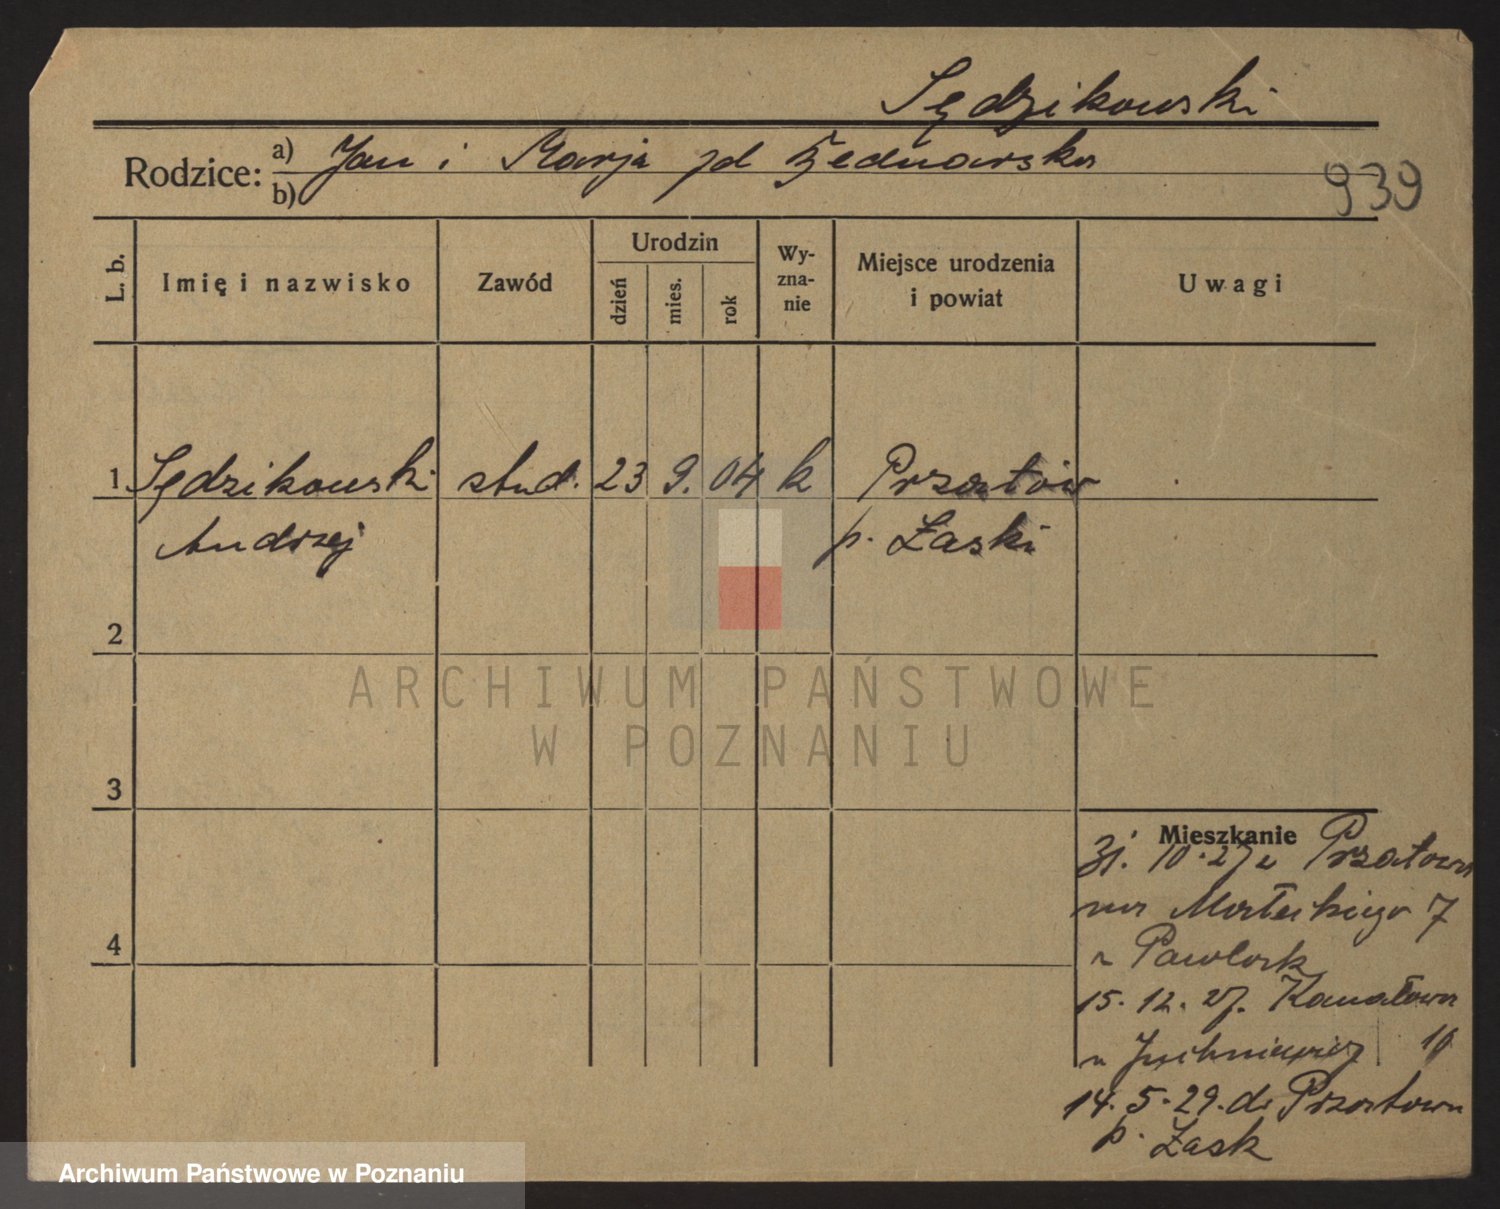 Sędzikowski
Rodzice: a) Jan i Marja zd Bednarska
b)
939
L. b.
Imię i nazwisko
Zawód
Urodzin
dzień
mies.
rok
Wy-
zna-
nie
Miejsce urodzenia
i powiat
Uwagi
1 Sędzikowski stud. 23 9. 04 k Przatów
Andrzej p. Łaski
2
ARCHIWUM PAŃSTWOWE
W POZNANIU
3
Mieszkanie
31. 10. 27 z Przatowa
na Małeckiego 7
u Pawlack
4
15. 12. 27. Kanałowa
u 10
14. 5. 29. do Przatowa
p. Łask
Archiwum Państwowe w Poznaniu